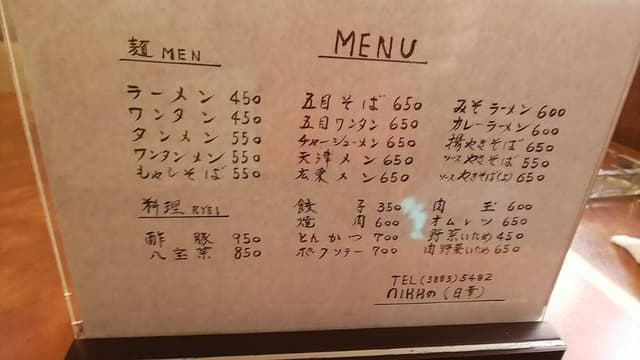 麺 MEN
MENU
ラーメン 450
ワンタン 450
タンメン 550
ワンタンメン 550
もやしそば 550
五目そば 650
五目ワンタン 650
チャーシューメン 650
天津メン 650
広東メン 650
みそラーメン 600
カレーラーメン 600
揚やきそば 650
ソースやきそば 550
ソースやきそば(上) 650
料理 RYRI
酢豚 950
八宝菜 850
餃子 350
焼肉 600
とんかつ 700
ポークソテー 700
肉玉 600
オムレツ 650
野菜いため 450
肉野菜いため 650
TEL (3883) 5482
(日華)